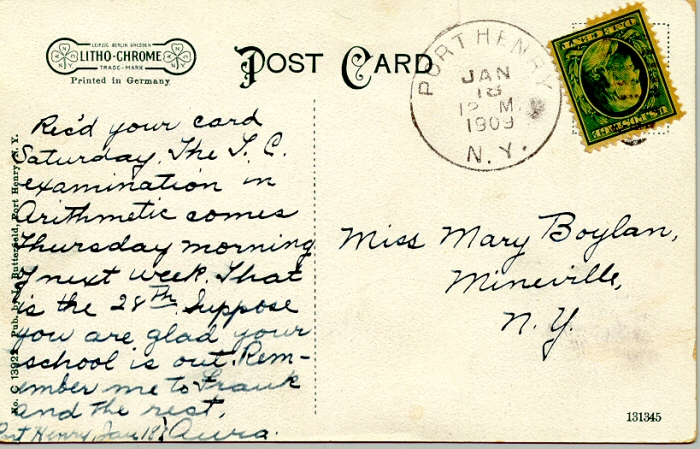 LEIPZIG BERLIN DRESDEN
LITHO-CHROME
TRADE-MARK
Printed in Germany
POST CARD
PORT HENRY
JAN
18
12 M
1909
N.Y.
U.S. POSTAGE
ONE CENT
Rec'd your card
Saturday. The T. C.
examination in
Arithmetic comes
Thursday morning
of next week. That
is the 28th. Suppose
you are glad your
school is out. Rem-
ember me to Frank
and the rest.
Port Henry, Jan 18, Aura.
Miss Mary Boylan,
Mineville,
N. Y.
No. C 13922 Pub. by L. Butterfield, Port Henry N. Y.
131345